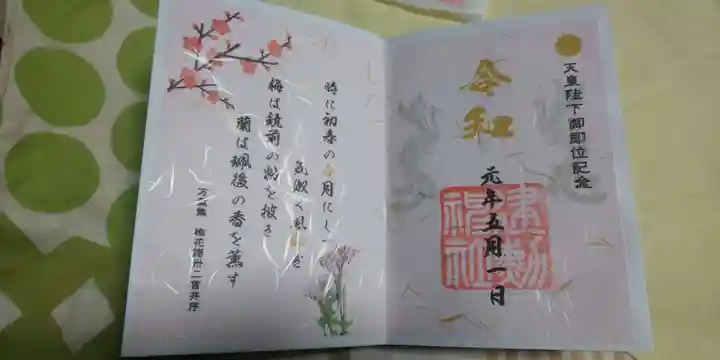 天皇陛下御即位記念
令和
元年五月一日
時に初春の令月にして
気淑く風和ぎ
梅は鏡前の粉を披き
蘭は珮後の香を薫す
万葉集 梅花謌卅二首并序